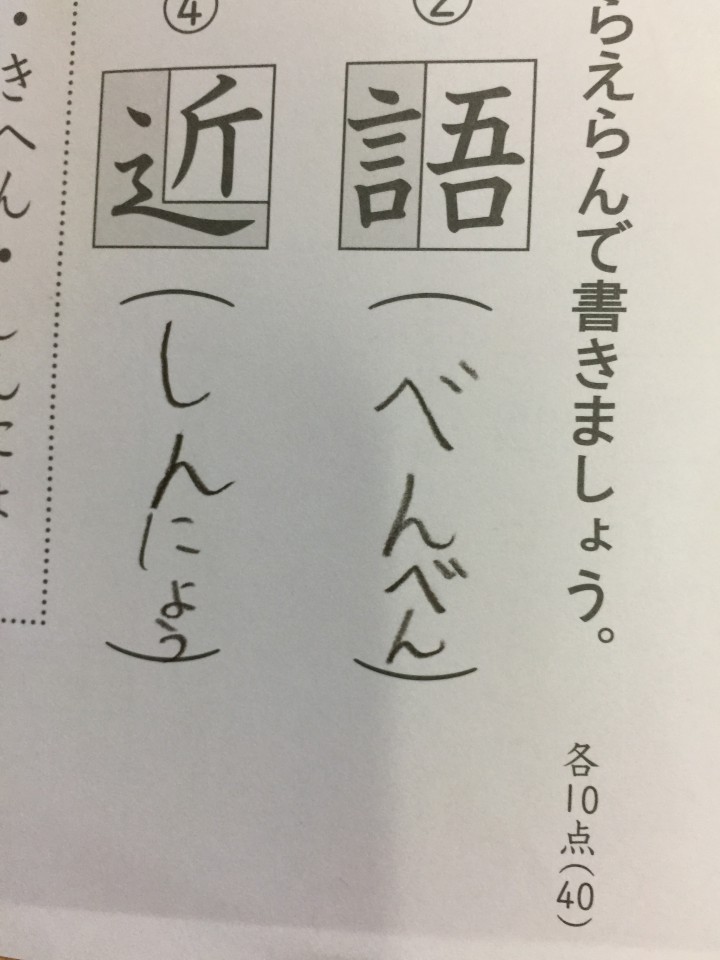 らえらんで書きましょう。
各10点(40)
②
語
(べんべん)
④
近
(しんにょう)
・きへん・しんによ